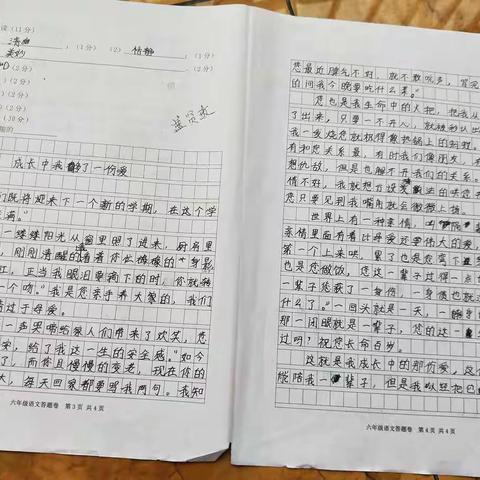 读(11分)
清幽,(1分) (2) 恬静,(1分)
美妙(2分)
D(2分)
(2分)
(2分)
(30分)
成长中我 了一份爱
们既将迎来下一个新的学期,在这个学
满。"
一缕缕阳光从窗里照了进来,厨房里
,刚刚清醒的 看着你 的身影
红,正当我眼泪要滴下的时,你就转
一个吻。"我是您亲手养大的,我们
过于母爱。
一声哭啼给家人们带来了欢笑,您
安,给了我这一生的安全感。"如今
了,而你且慢慢的变老,现在你的
大,每天回家都要骂我两句。我知
六年级语文答题卷 第3页 共4页
您最近脾气不好,就不敢吭声,
的问我今晚要吃什么菜。"
您也是我生命中的火把,把我从
了出来,只要一不开心,就被
我一发烧您就 得像热锅上的蚂蚁。
有和您关系最,有时我们像朋友,有
想仇敌,但是也 不开我们的关系。
情不好,我就想方设 法的哄您
您只要见到我嘴角就会微微上扬。
世界上有一种亲情,叫
亲情里面有着比母爱还要伟大的爱,
第一个上来哄,累了也是您 下
也是您做饭,您这一辈子过得一点
一辈子您获了一身伤,一身债也就
什么了。"一回头就是一天,一
那一闭眼就是一辈子,您的这一生
过吗?祝您长命百岁。
这就是我成长中的那份爱,这
陪我一辈子,但是我 把
六年级语文答题卷 第4页 共4页